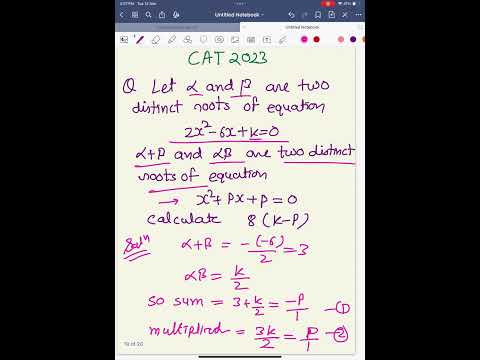 Untitled Notebook
Untitled Notebook
CAT 2023
Q Let α and β are two
distinct roots of equation
2x²-6x+k=0
α+β and αβ are two distinct
roots of equation
→ x²+Px+P=0
calculate 8(k-P)
Solⁿ α+β = -(-6)/2 = 3
αβ = k/2
so sum = 3+k/2 = -P/1 —①
multiplied = 3k/2 = P/1 —②
19 of 20